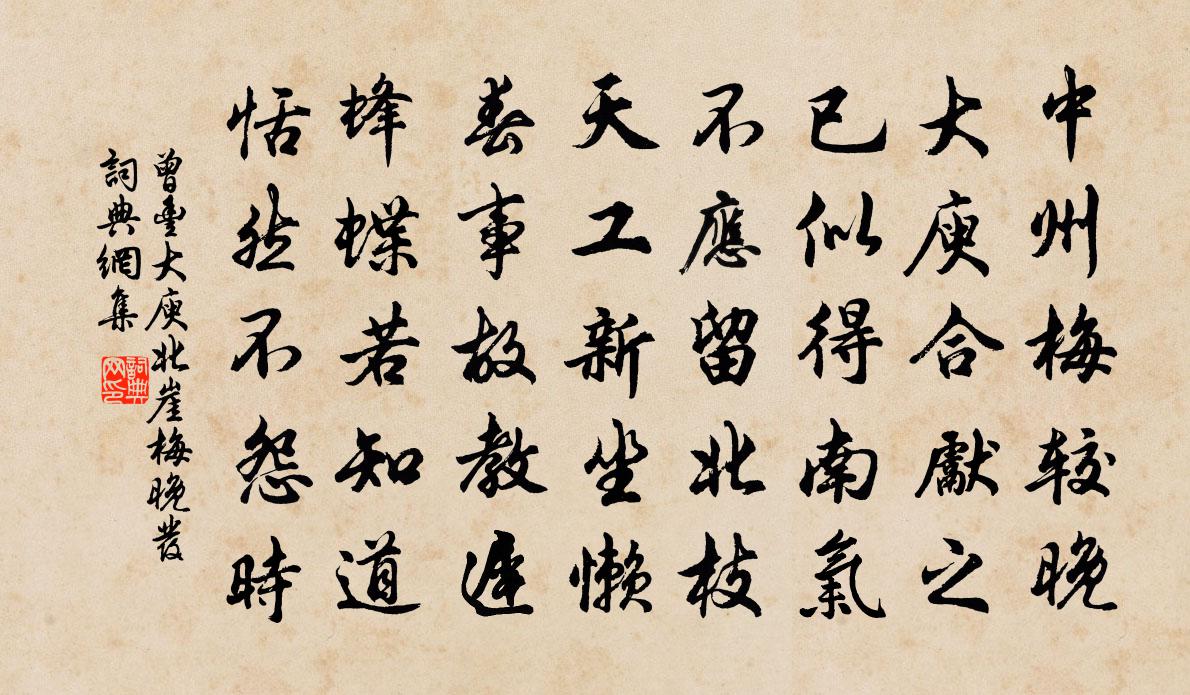 中州梅较晚
大庾合獻之
已似得南氣
不應留北枝
天工新坐懶
春事故教遲
蜂蝶若知道
恬然不怨時
曾豊大庾北崖梅晚發
詞典網集
詞典网印